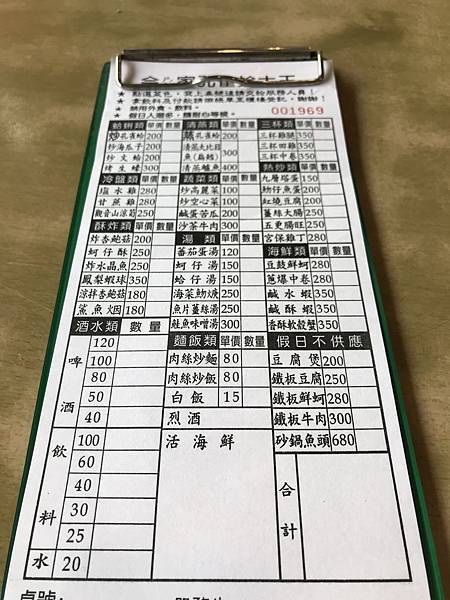 ★ 點選菜色,
★ 拿飲料及付款請
★ 禁用外食、飲料。
★ 假日人潮多, 請耐心等候。
001969
蛤蜊類 單價 數量 清蒸類 單價 數量 三杯類 單價 數量
炒孔雀蛤 200 蒸孔雀蛤 200 三杯雞腿 350
炒海瓜子 200 清蒸大比目 三杯田雞 350
炒文蛤 200 魚(扁鱈) 300 三杯中卷 350
烤生蠔 300 清蒸鱸魚 400 熱炒類 單價 數量
冷盤類 單價 數量 蔬菜類 單價 數量 九層塔蛋 150
塩水雞 280 炒高麗菜 100 蚵仔魚蛋 200
甘蔗雞 280 炒空心菜 100 紅燒豆腐 200
觀音山涼筍 250 鹹蛋苦瓜 200 薑絲大腸 250
酥炸類 單價 數量 沙茶牛肉 300 五更腸旺 250
炸杏鮑菇 200 湯類 單價 數量 宮保雞丁 280
蚵仔酥 250 蕃茄蛋湯 120 海鮮類 單價 數量
炸水晶魚 250 蚵仔湯 150 豆鼓鮮蚵 280
鳳梨蝦球 350 蛤仔湯 150 蔥爆中卷 280
涼拌杏鮑菇 180 海菜魩魩 250 鹹水蝦 350
鯊魚烟 180 魚片薑絲湯 250 鹹酥蝦 350
酒水類 數量 鮭魚味噌湯 300 香酥軟殼蟹 350
120 麵飯類 單價 數量 假日不供應
啤酒 100 肉絲炒麵 80 豆腐煲 200
80 肉絲炒飯 80 鐵板豆腐 250
50 白飯 15 鐵板鮮蚵 280
40 烈酒 鐵板牛肉 300
飲料 100 活海鮮 砂鍋魚頭 680
60
40 合計
30
25
水 20
桌號: